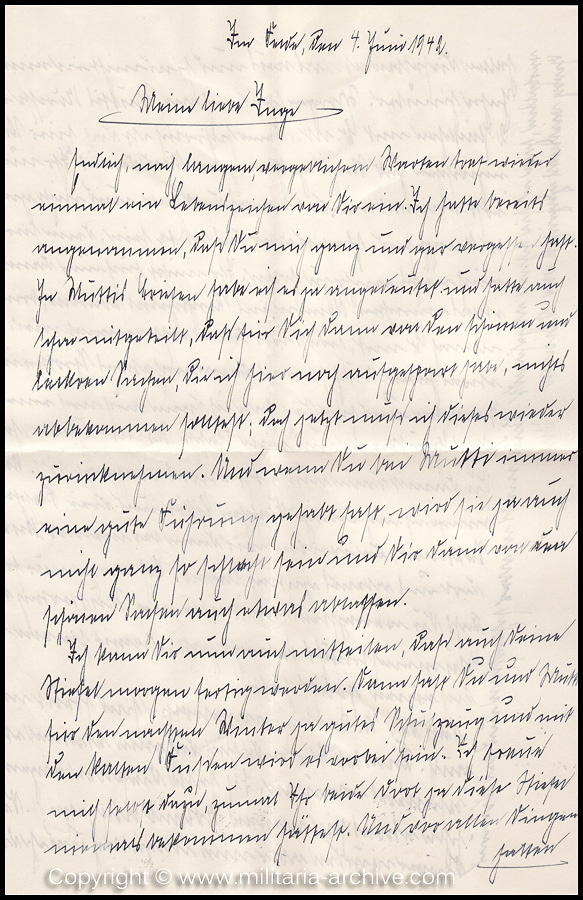 Im Felde, den 4. Juni 1942.
Meine liebe Inge
Endlich, nach langem vergeblichem Warten traf wieder
einmal ein Lebenszeichen von Dir ein. Ich hatte bereits
angenommen, daß Du mich ganz und gar vergessen hast.
In Muttis Briefen habe ich es ja angedeutet und hatte auch
schon mitgeteilt, daß für Dich dann von den schönen und
leckren Sachen, die ich hier noch aufgespart habe, nichts
abbekommen solltest. Doch jetzt muß ich dieses wieder
zurücknehmen. Und wenn Du bei Mutti immer
eine gute Führung gehabt hast, wird sie ja auch
nicht ganz so schlecht sein und Dir dann von den
schönen Sachen auch etwas ablassen.
Ich kann Dir nun auch mitteilen, daß auch Deine
Stiefel morgen fertig werden. Dann habt Du und Mutti
für den nächsten Winter ja gutes Schuhzeug und mit
den kalten Füßen wird es vorbei sein. Ich freue
mich dazu, zumal Ihr beide dort ja diese Stiefel
niemals bekommen hättet. Und vor allen Dingen
halten
Copyright © www.militaria-archive.com